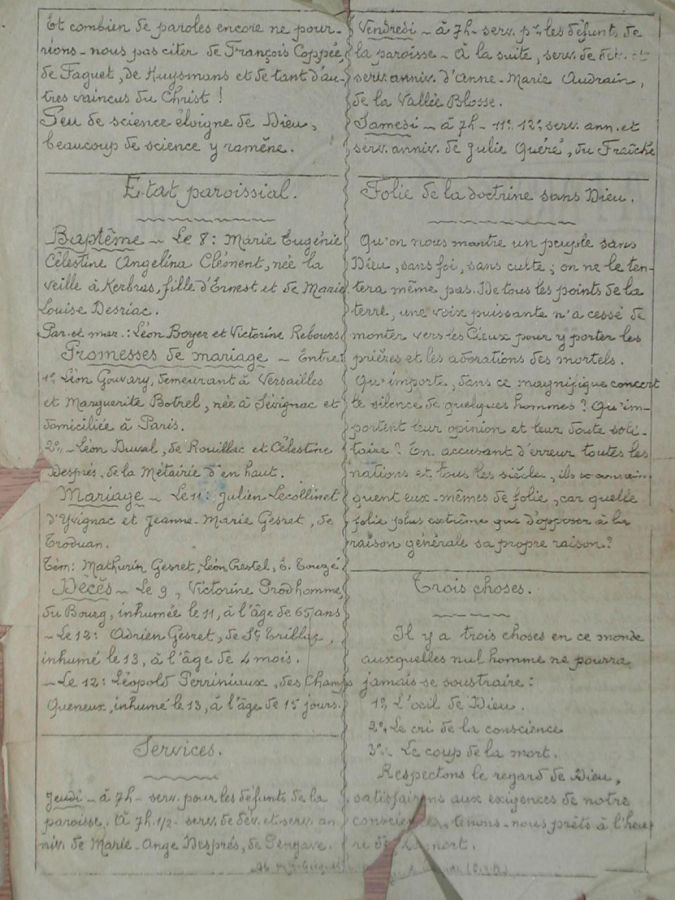 Et combien de paroles encore ne pour-
rions-nous pas citer de François Coppée,
de Faguet, de Huysmans et de tant d'au-
tres vaincus du Christ !
Peu de science éloigne de Dieu,
beaucoup de science y ramène.
Etat paroissial.
Baptême - Le 8: Marie Eugénie
Célestine Angelina Clément, née la
veille à Kerbras, fille d'Ernest et de Marie
Louise Desriac.
Par. et mar.: Léon Boyer et Victorine Rebours.
Promesses de mariage - Entre
1º, Léon Gouvary, demeurant à Versailles
et Marguerite Botrel, née à Sévignac et
domiciliée à Paris.
2º, Léon Duval, de Rouillac et Célestine
Després, de la Métairie d'en haut.
Mariage - Le 11: Julien Lecollinet
d'Yvignac et Jeanne-Marie Gesret, de
Troduan.
Tém: Mathurin Gesret, Léon Crestel, E. Touzé
Décès - Le 9, Victorine Prodhomme,
du Bourg, inhumée le 11, à l'âge de 65 ans
- Le 12: Adrien Gesret, de St Trillac,
inhumé le 13, à l'âge de 4 mois.
- Le 12: Léopold Perriniaux, des Champs
Queneux, inhumé le 13, à l'âge de 15 jours.
Services.
Jeudi - à 7h - serv. pour les défunts de la
paroisse. À 7h.1/2 - serv. de dév. et serv. an
niv. de Marie-Ange Després, de Pengave.
Vendredi - à 7h - serv. pr les défunts de
la paroisse - À la suite, serv. de dév. et
serv. anniv. d'Anne-Marie Audrain,
de la Vallée Blosse.
Samedi - à 7h - 11º. 12º, serv. ann. et
serv. anniv. de Julie Quéré, du Fraîche
Folie de la doctrine sans Dieu.
Qu'on nous montre un peuple sans
Dieu, sans foi, sans culte; on ne le ten-
tera même pas. De tous les points de la
terre, une voix puissante n'a cessé de
monter vers les Cieux pour y porter les
prières et les adorations des mortels.
Qu'importe, dans ce magnifique concert
le silence de quelques hommes? Qu'im-
portent leur opinion et leur doute soli-
taire? En accusant d'erreur toutes les
nations et tous les siècles, ils se convain
quent eux-mêmes de folie, car quelle
folie plus extrême que d'opposer à la
raison générale sa propre raison?
Trois choses.
Il y a trois choses en ce monde
auxquelles nul homme ne pourra
jamais se soustraire:
1º, L'oeil de Dieu.
2º, Le cri de la conscience
3º - Le coup de la mort.
Respectons le regard de Dieu,
satisfaisons aux exigences de notre
conscience, tenons-nous prêts à l'heu-
re de la mort.